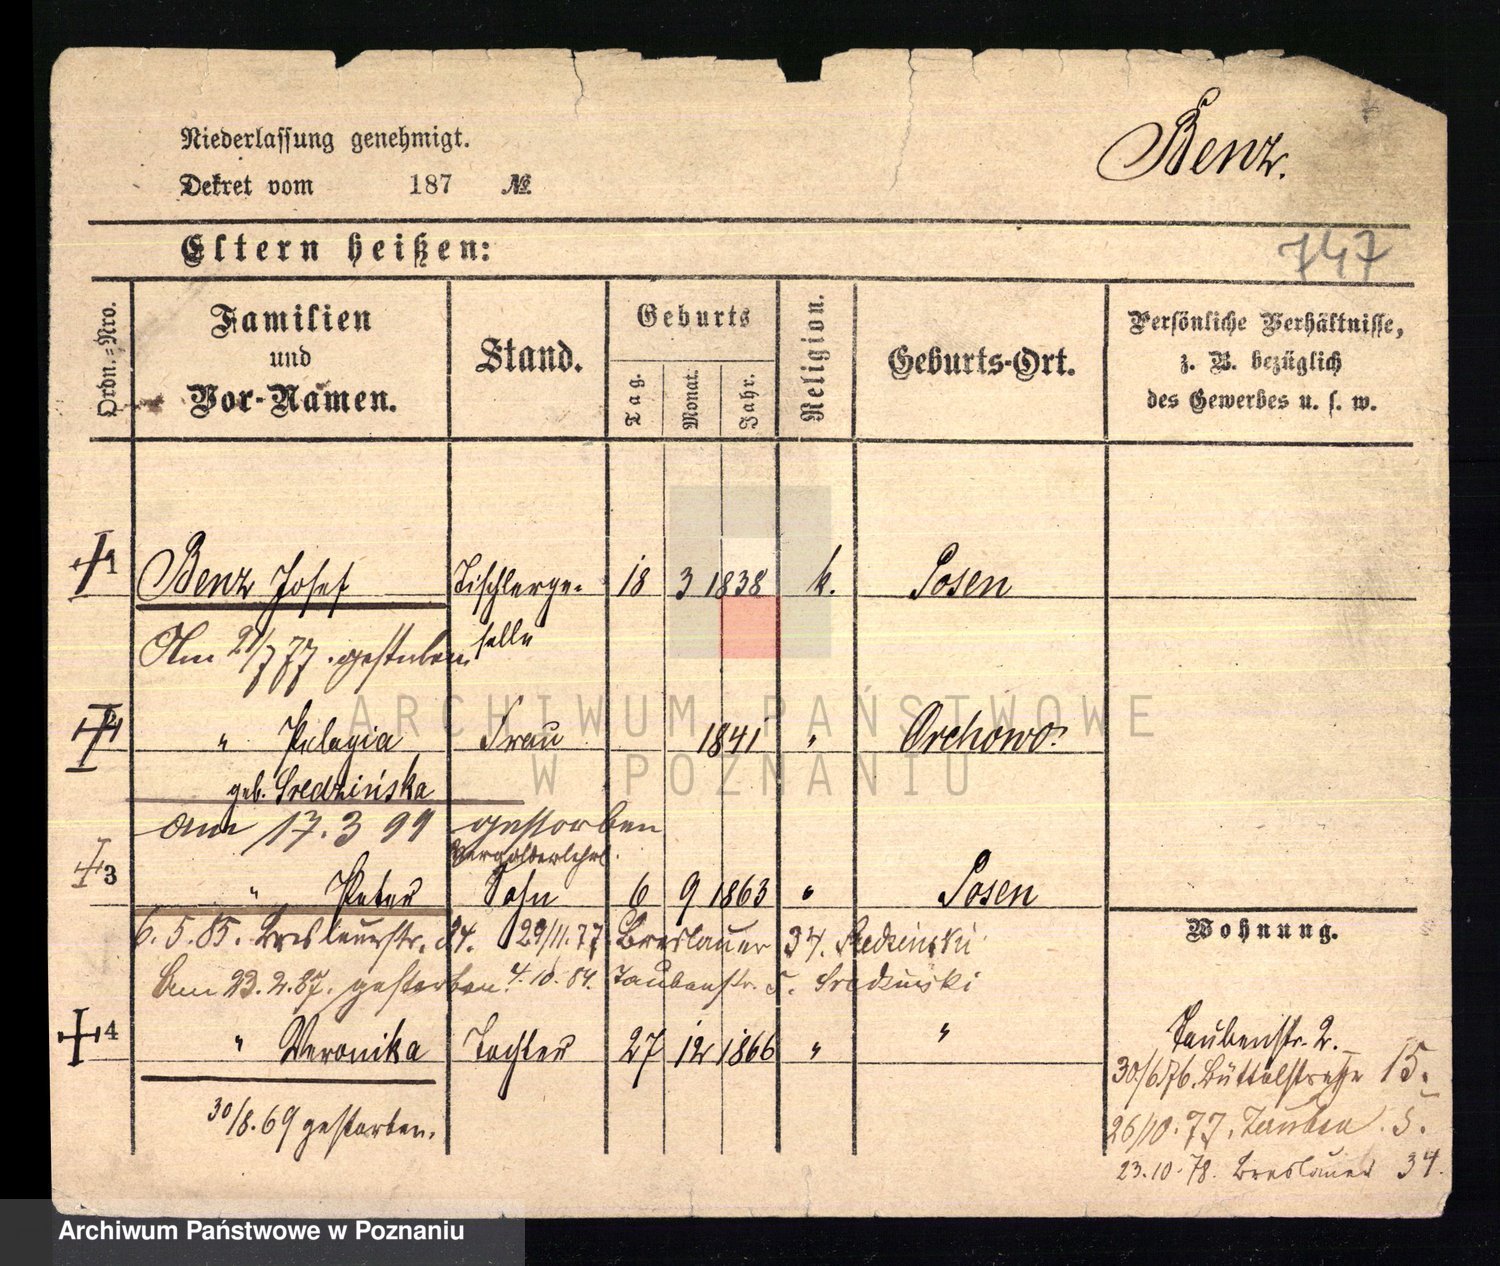 Benz.
Niederlassung genehmigt.
Dekret vom 187 №
Eltern heißen:
747
Ordn.=Nro.
Familien und Vor-Namen.
Stand.
Geburts
Tag.
Monat.
Jahr.
Religion.
Geburts-Ort.
Persönliche Verhältnisse,
z. B. bezüglich
des Gewerbes u. s. w.
1 Benz Josef Tischlerge= 18 3 1838 k. Posen
selle
Am 21/7 77. gestorben
2 " Pelagia Frau 1841 " Orchowo
geb. Sredzińska
am 17. 3 99 gestorben
Vergolderlehrl.
3 " Peter Sohn 6 9 1863 " Posen
6. 5. 85. Breslauerstr. 34. 29/11. 77 Breslauer 34. Sredzinski
Am 23. 2. 87. gestorben. 4. 10. 84. Taubenstr. 5. Sredzinski
4 " Veronika Tochter 27 12 1866 " "
30/8. 69 gestorben.
Wohnung.
Taubenstr. 2.
30/6 76. Büttelstraße 15.
26/10. 77. Tauben. 5.
23. 10. 78. Breslauer 34.
ARCHIWUM PAŃSTWOWE
W POZNANIU
Archiwum Państwowe w Poznaniu